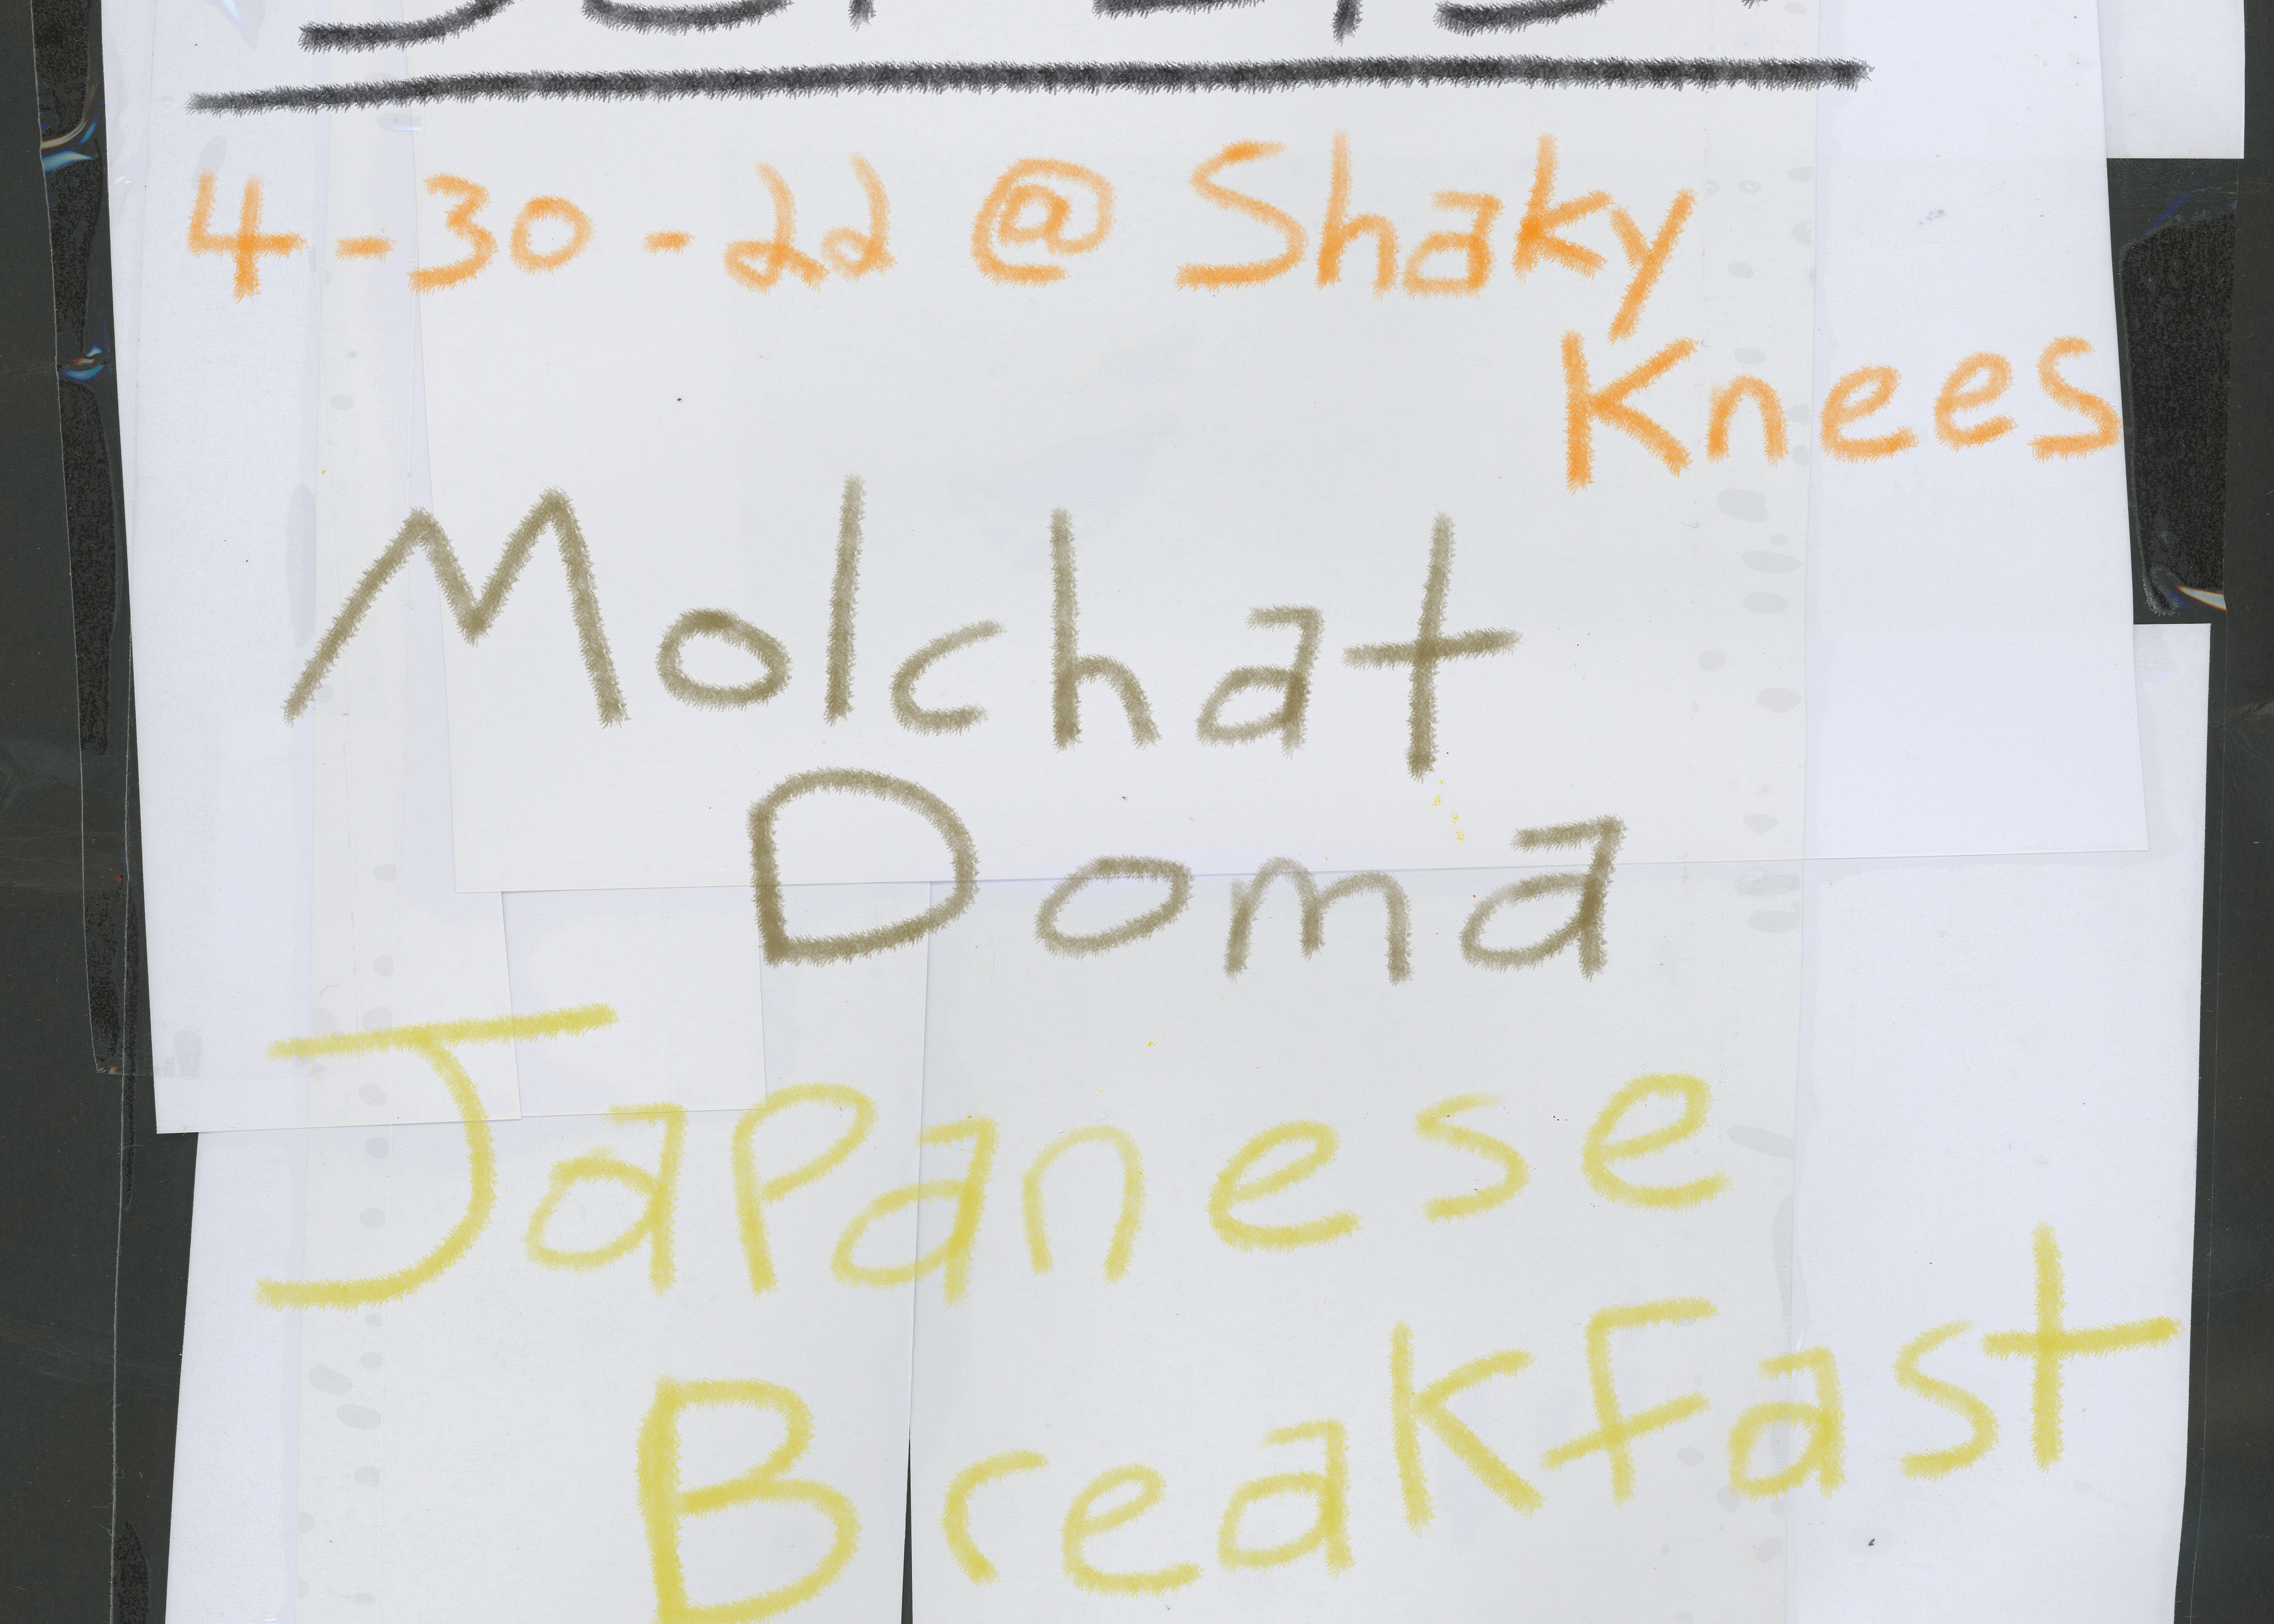 4-30-22 @ Shaky
Knees
Molchat
Doma
Japanese
Breakfast